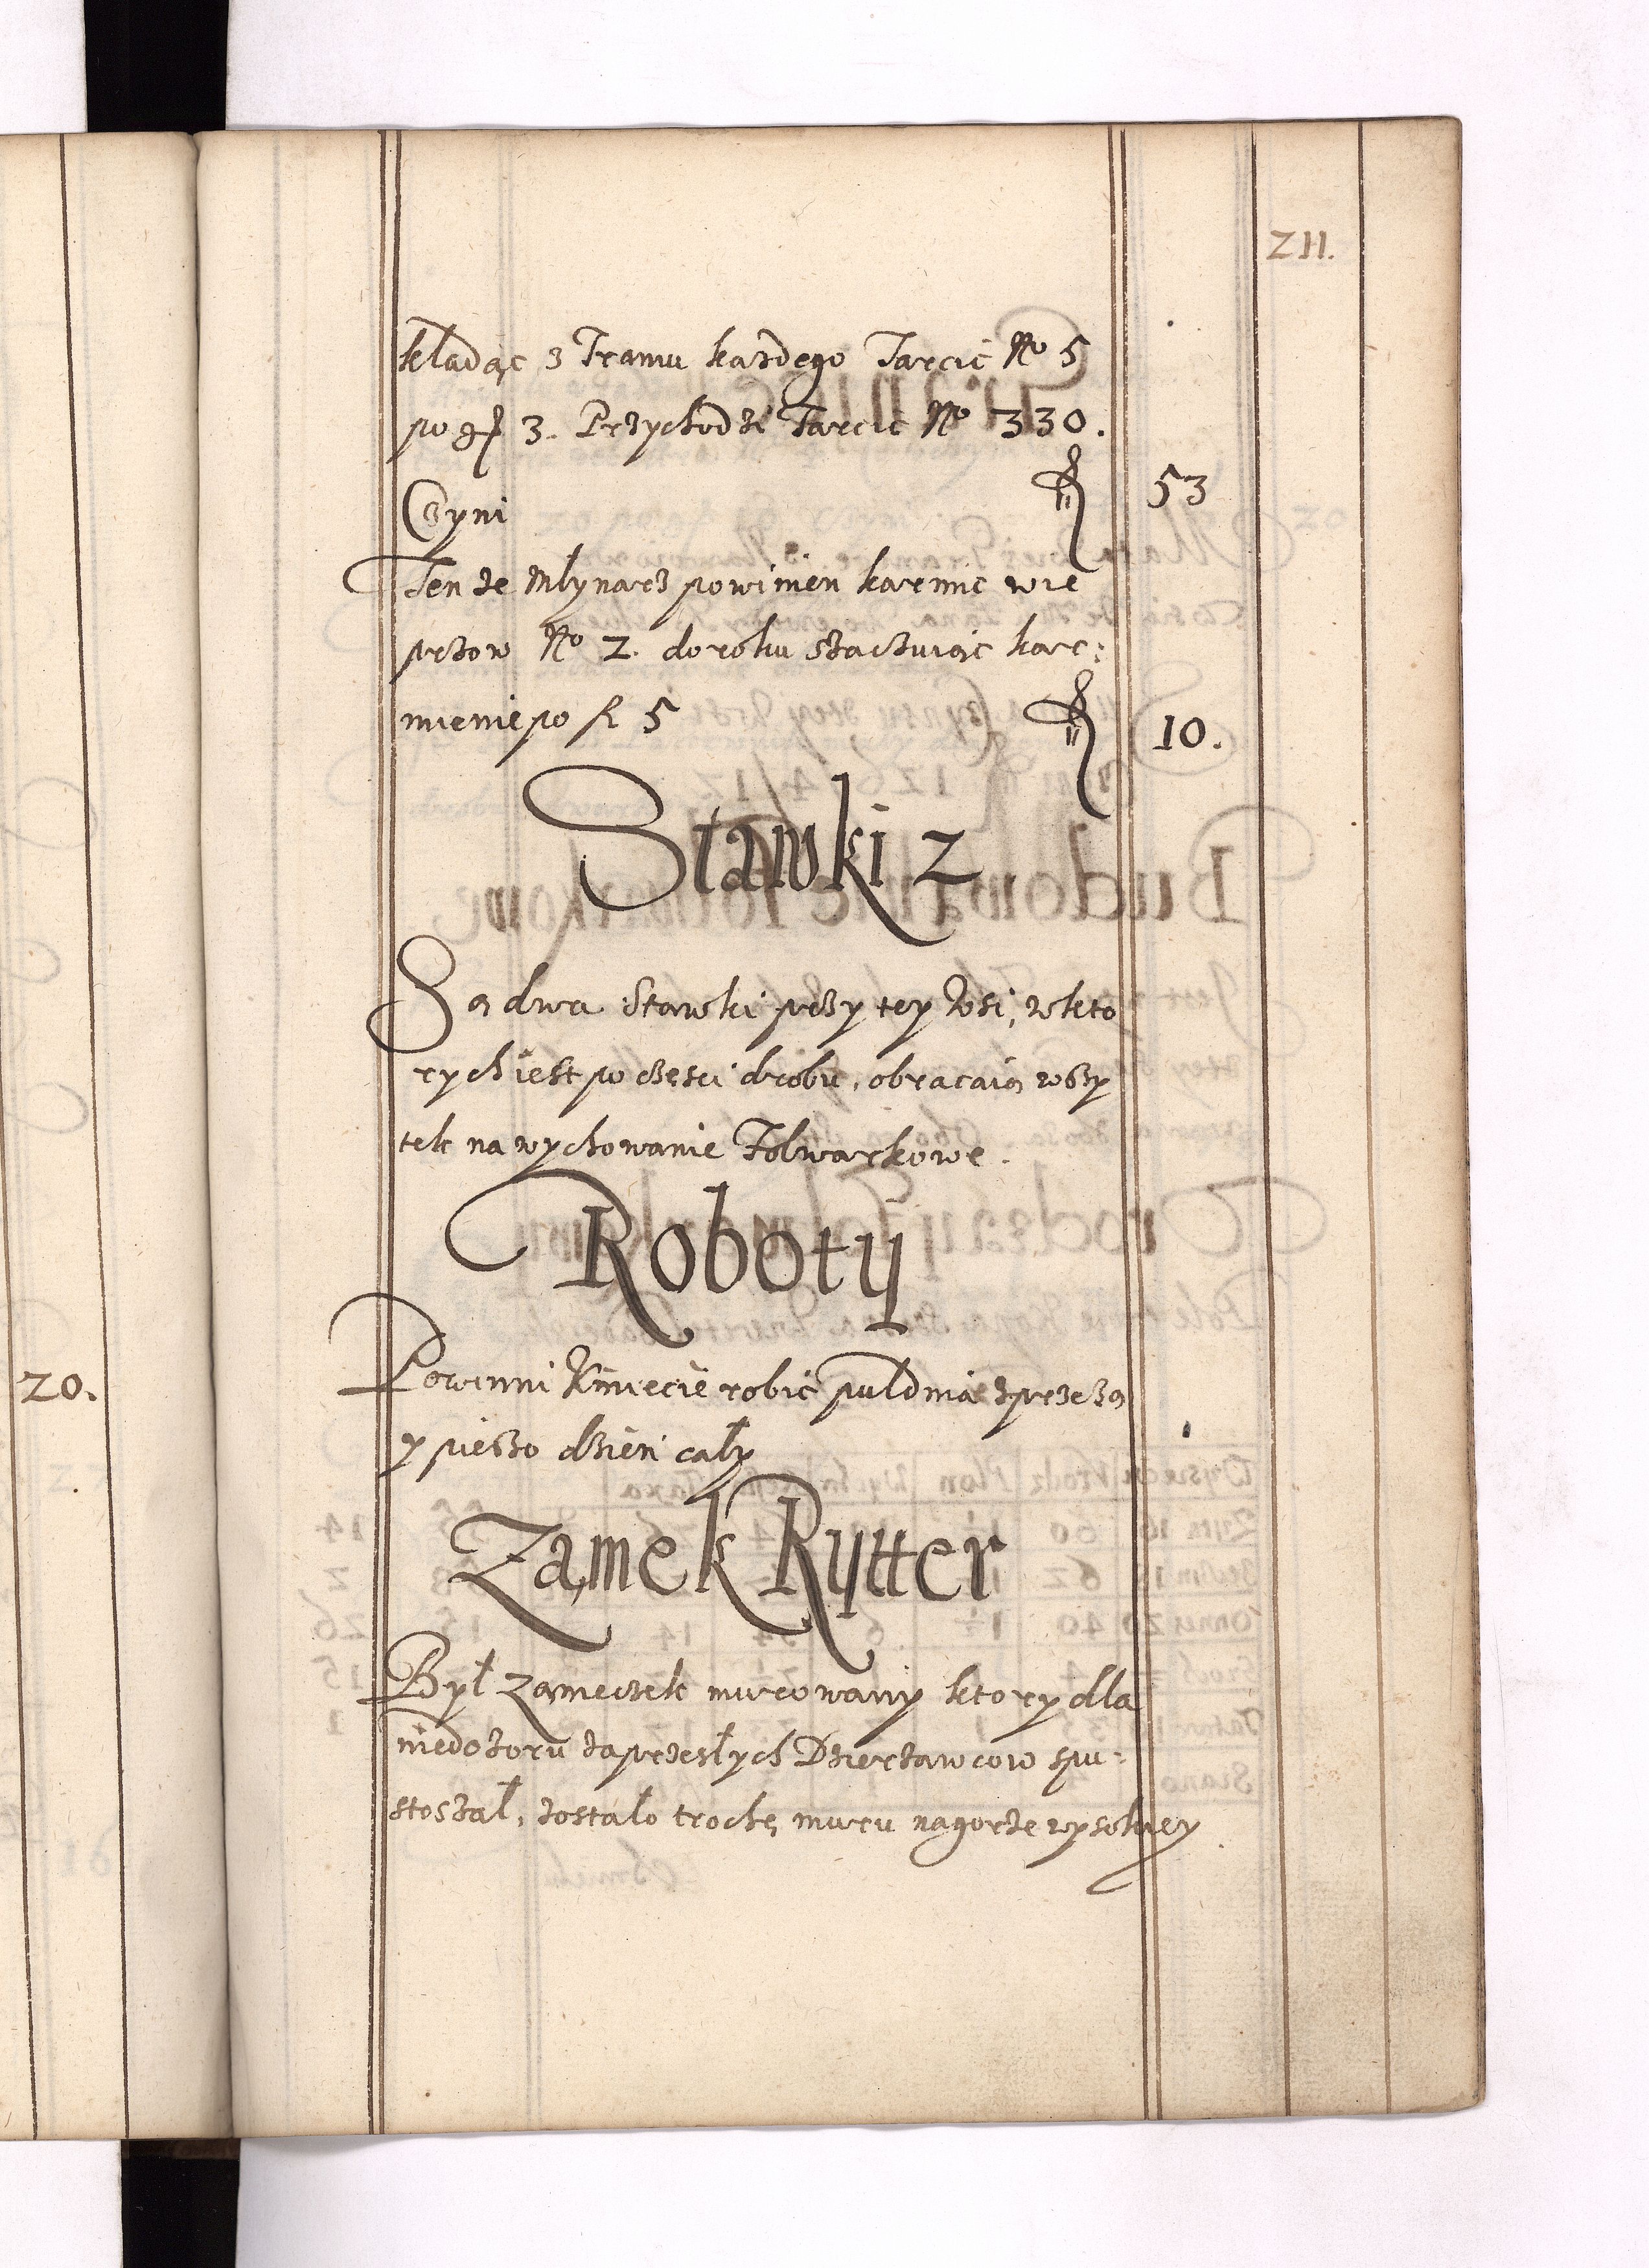 211.
kładąc z Tramu kazdego Tarcic No 5
po gr 3. Przychodzi Tarcic No 330.
Czyni fl 53
Ten ze Mlynarz powinien karmic wie
przow No 2. do roku szacuiąc kar:
mienie po fl 5 fl 10.
Stawki 2
Są dwa Stawki przy tey Wsi, w kto
rych iest po części drobu, obracaią wszy
tek na wychowanie Folwarkowe.
Roboty
Powinni Kmiecie robić puldnia zprzezą
y pieszo dzień cały
20.
Zamek Rytter
Był Zameczek murowany ktory dla
niedozoru zaprzeslych Dzierzawcow spu:
stoszał, zostało trochę muru nagorze wysokiey